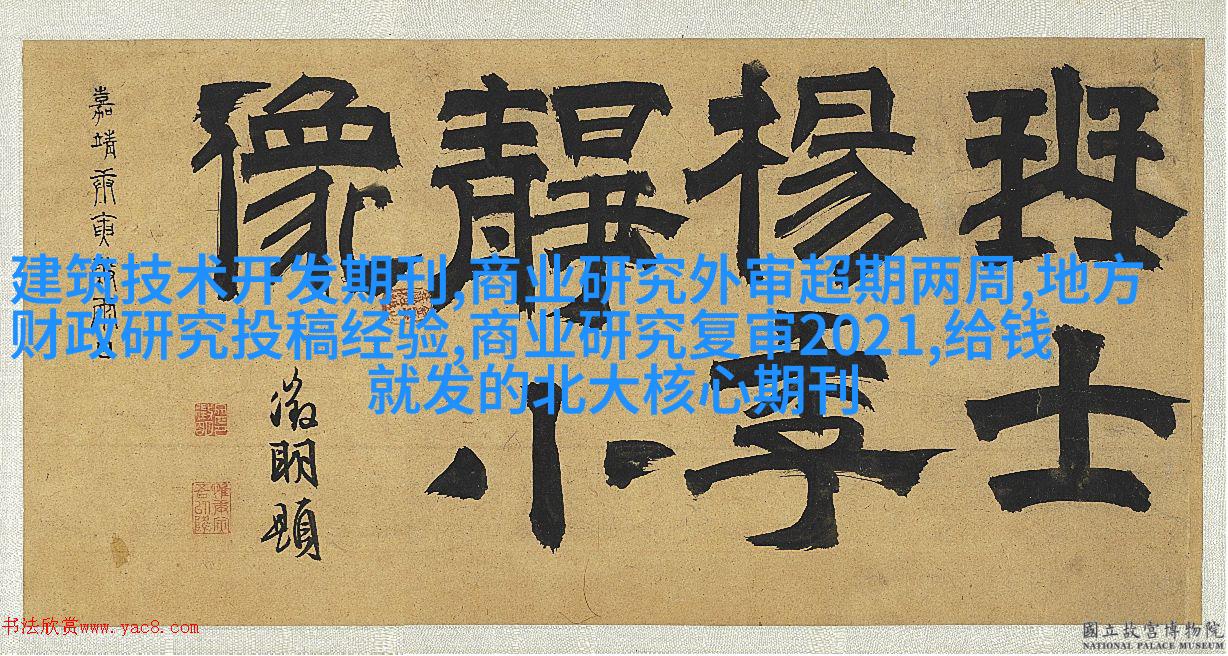 建筑技术开发期刊,商业研究外审超期两周,地方
财政研究投稿经验,商业研究复审2021,给钱
就发的北大核心期刊
琴士
楊季
靜小
像
徵明題
嘉靖庚寅
书法欣赏www.yac8.com
國立故宮博物院
NATIONAL PALACE MUSEUM